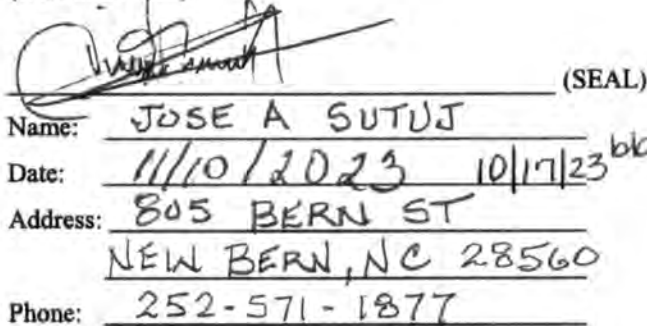 (SEAL)
Name: JOSE A SUTUJ
Date: 11/10/2023 10/17/23 blc
Address: 805 BERN ST
NEW BERN, NC 28560
Phone: 252-571-1877